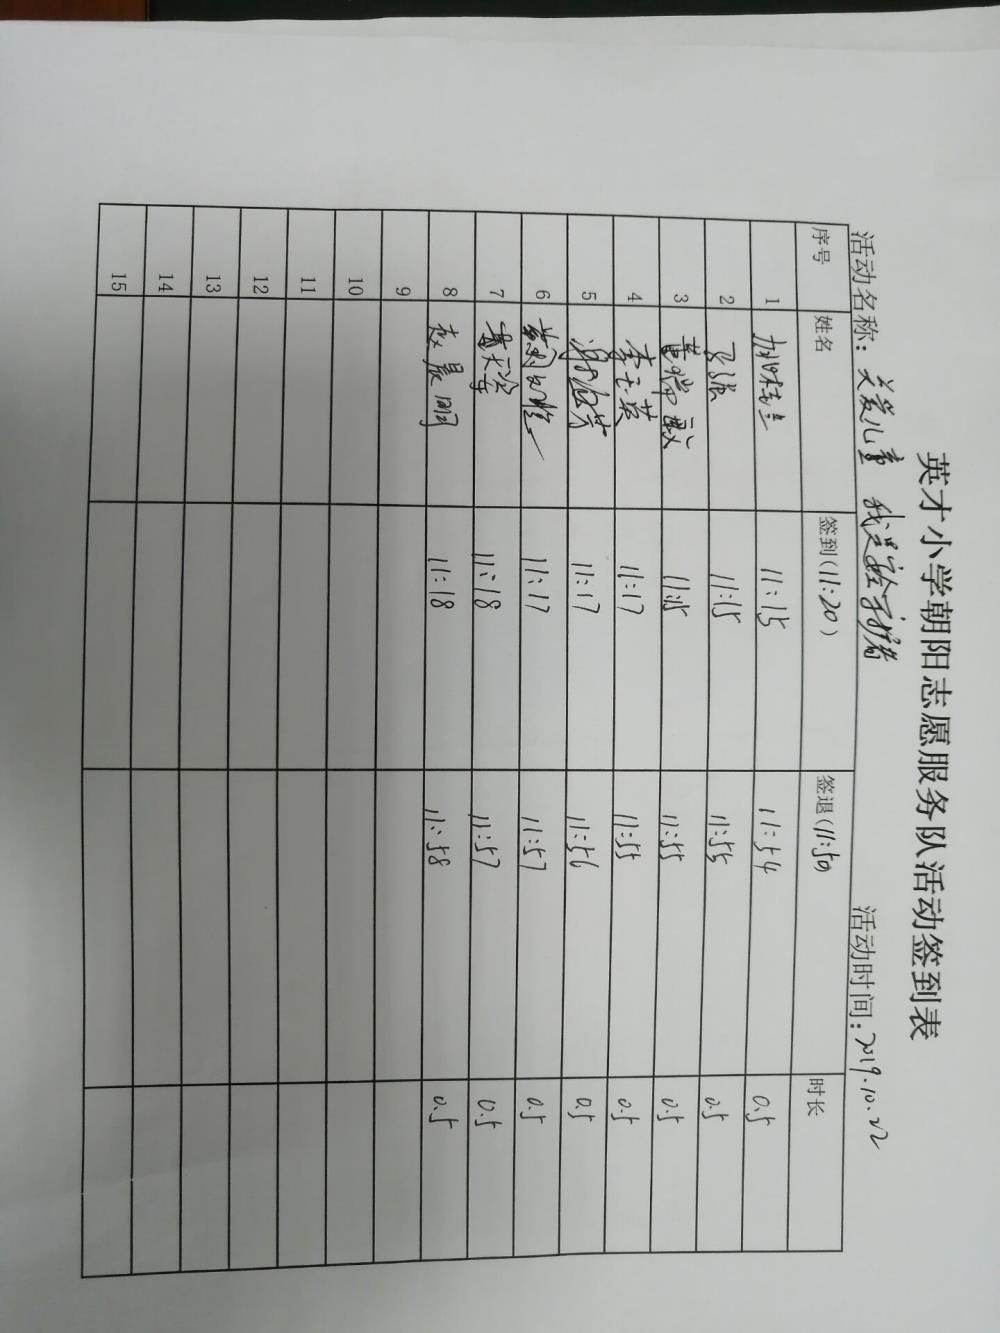 英才小学朝阳志愿服务队活动签到表
活动名称：关爱儿童 我是守护者 活动时间：2019.10.22
序号 姓名 签到（11:20） 签退（11:50） 时长
1 11:15 11:54 0.5
2 11:15 11:55 0.5
3 11:15 11:55 0.5
4 李玉英 11:17 11:55 0.5
5 11:17 11:56 0.5
6 11:17 11:57 0.5
7 11:18 11:57 0.5
8 赵晨 11:18 11:58 0.5
9
10
11
12
13
14
15